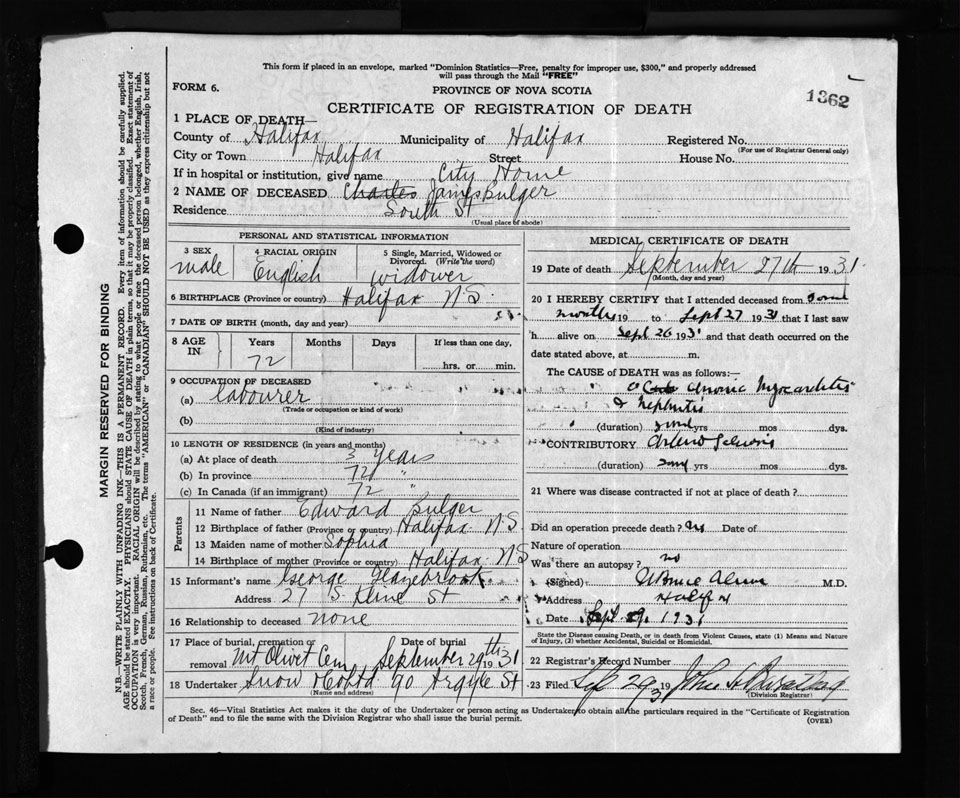 This form if placed in an envelope, marked "Dominion Statistics—Free, penalty for improper use, $300," and properly addressed
will pass through the Mail "FREE"
FORM 6.
PROVINCE OF NOVA SCOTIA
1362
CERTIFICATE OF REGISTRATION OF DEATH
1 PLACE OF DEATH—
County of Halifax Municipality of Halifax Registered No.
(For use of Registrar General only)
City or Town Halifax Street House No.
If in hospital or institution, give name City Home
2 NAME OF DECEASED Charles James Bulger
Residence South St
(Usual place of abode)
PERSONAL AND STATISTICAL INFORMATION
3 SEX 4 RACIAL ORIGIN 5 Single, Married, Widowed or Divorced. (Write the word)
male English widower
6 BIRTHPLACE (Province or country) Halifax N.S.
7 DATE OF BIRTH (month, day and year)
8 AGE IN Years Months Days If less than one day.
72 hrs. or min.
9 OCCUPATION OF DECEASED
(a) labourer
(Trade or occupation or kind of work)
(b)
(Kind of industry)
10 LENGTH OF RESIDENCE (in years and months)
(a) At place of death 3 years
(b) In province 72 "
(c) In Canada (if an immigrant) 72 "
Parents
11 Name of father Edward Bulger
12 Birthplace of father (Province or country) Halifax N.S
13 Maiden name of mother Sophia
14 Birthplace of mother (Province or country) Halifax N S
15 Informant's name George Hazebrook
Address 27 S. Kline St
16 Relationship to deceased none
17 Place of burial, cremation or removal Date of burial
Mt Olivet Cem September 29th 1931
18 Undertaker Snow Co Ltd 90 Argyle St
(Name and address)
MEDICAL CERTIFICATE OF DEATH
19 Date of death September 27th 1931.
(Month, day and year)
20 I HEREBY CERTIFY that I attended deceased from some
months 19 to Sept 27 1931 that I last saw
h alive on Sept 26 1931 and that death occurred on the
date stated above, at m.
The CAUSE of DEATH was as follows:—
Chronic Myocarditis
& Nephritis
(duration) yrs mos dys.
CONTRIBUTORY
(duration) yrs mos dys.
21 Where was disease contracted if not at place of death?
Did an operation precede death? no Date of
Nature of operation
Was there an autopsy? no
(Signed) M.D.
Address Halifax
Date Sept. 29, 1931
State the Disease causing Death, or in death from Violent Causes, state (1) Means and Nature
of Injury, (2) whether Accidental, Suicidal or Homicidal.
22 Registrar's Record Number
23 Filed Sep 29 1931 John
(Division Registrar)
Sec. 46—Vital Statistics Act makes it the duty of the Undertaker or person acting as Undertaker to obtain all the particulars required in the "Certificate of Registration
of Death" and to file the same with the Division Registrar who shall issue the burial permit.
(OVER)
MARGIN RESERVED FOR BINDING
N.B.—WRITE PLAINLY WITH UNFADING INK—THIS IS A PERMANENT RECORD. Every item of information should be carefully supplied.
AGE should be stated EXACTLY. PHYSICIANS should STATE CAUSE OF DEATH in plain terms, so that it may be properly classified. Exact statement of
OCCUPATION is very important. RACIAL ORIGIN will be described by stating to what people or race the deceased person belonged, whether English, Irish,
Scotch, French, German, Russian, Ruthenian, etc. The terms "AMERICAN" or "CANADIAN" SHOULD NOT BE USED as they express citizenship but not
a race or people. See instructions on back of Certificate.